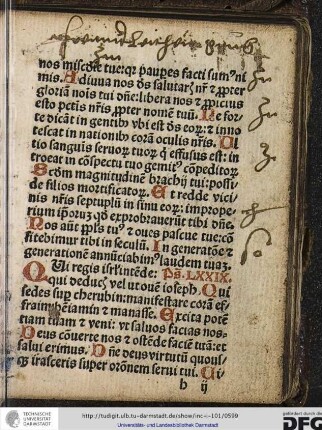 nos misc̄die tue: qꝛ paup̄es facti sum⁹ ni
mis. Adiuua nos de⁹ salutaꝝ nr̄ ⁊ ꝓpter
gloriā nois tui dn̄e: libera nos ⁊ ꝓpicius
esto petis nr̄is ꝓpter nomē tuū. Ne for
te dicāt in gentib⁹ vbi est ds̄ eoꝝ: ⁊ inno
tescat in nationib⁹ corā oculis nr̄is. Ul
tio sanguis seruoꝝ tuoꝝ q̄ effusus est: in
troeat in cōspectu tuo gemit⁹ cōpeditoꝝ
Scd̄m magnitudinē brachij tui: possi
de filios mortificatoꝝ. Et redde vici
nis nr̄is septuplū in sinu eoꝝ: imprope
rium ip̄oꝝ qd̄ exprobrauerūt tibi dn̄e.
Nos aūt ppl̄s tu⁹ ⁊ oues pascue tue: cō
fitebimur tibi in seculū. In generatōe ⁊
generationē annūciabim⁹ laudem tuaꝫ.
Qui regis isrl̄ intēde: Ps̄. LXXIX.
qui deduc⁹ vel ut ouē ioseph. Qui
sedes suꝑ cherubin: manifestare corā ef
fraim beiamin ⁊ manasse. Excita potē
tiam tuam ⁊ veni: vt saluos facias nos.
Deus cōuerte nos ⁊ ostēde faciē tuā: et
salui erimus. Dn̄e deus virtutū quousꝗ
irasceris super orōnem serui tui. Ci
b ij
TECHNISCHE
UNIVERSITÄT
DARMSTADT
http://tudigit.ulb.tu-darmstadt.de/show/inc-i-101/0599
Universitäts- und Landesbibliothek Darmstadt
gefördert durch die
DFG